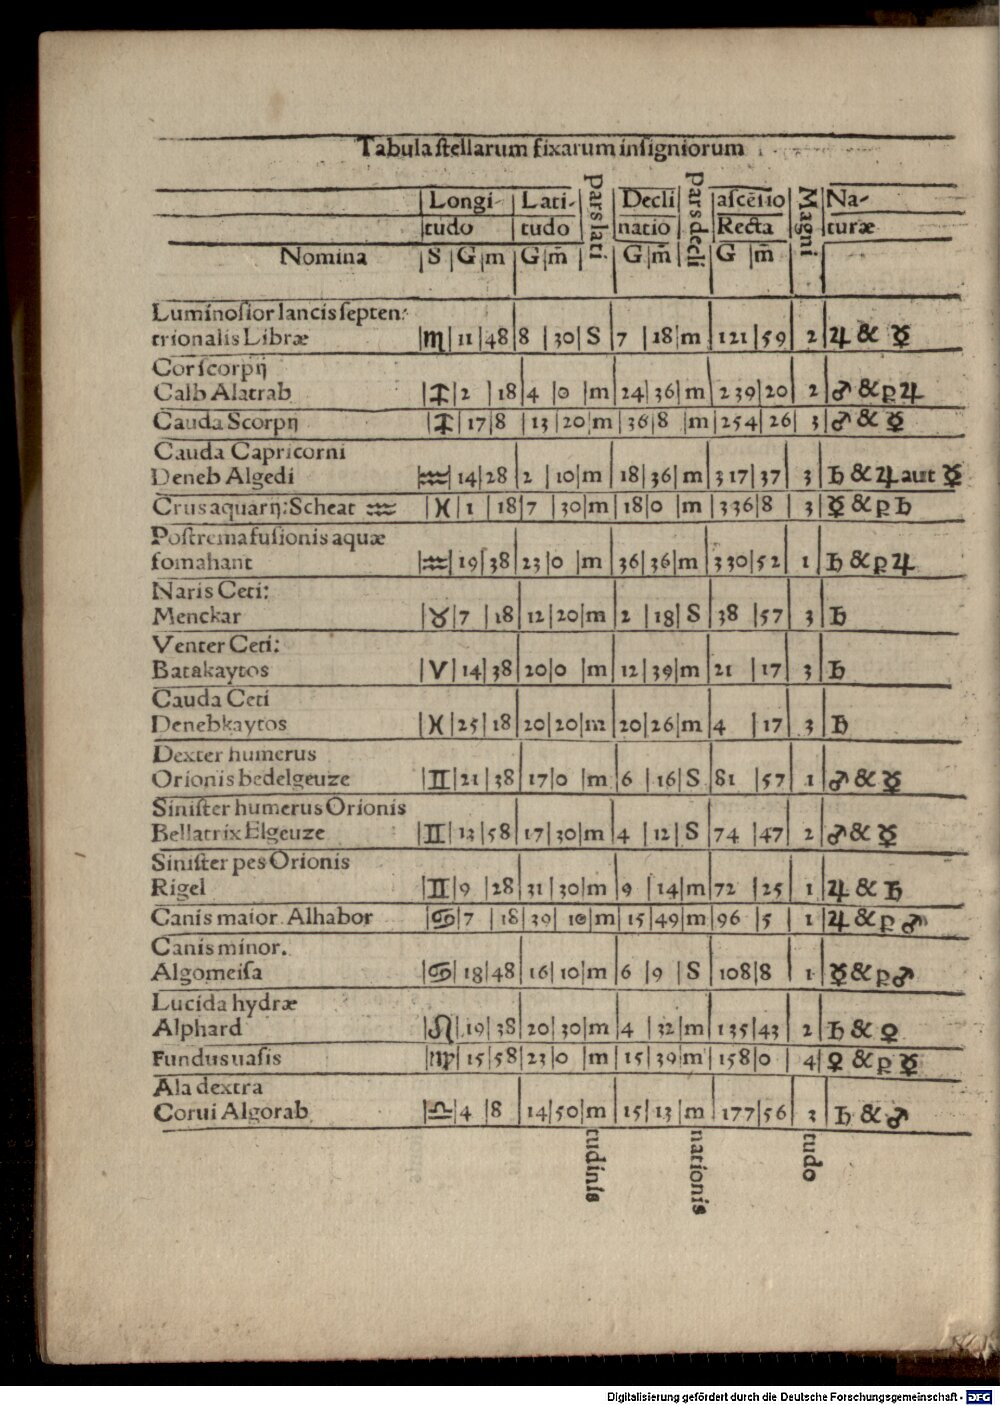 Tabula stellarum fixarum insigniorum
Longi- Lati- pars lati Decli pars decli ascẽsio Magni Na-
tudo tudo natio Recta turæ
Nomina S G m G m̃ G m̃ G m̃
Luminosior lancis septen:
trionalis Libræ ♏ 11 48 8 30 S 7 18 m 121 59 2 ♃ & ☿
Cor scorpij
Calb Alatrab ♐ 2 18 4 0 m 24 36 m 239 20 2 ♂ & p ♃
Cauda Scorpij ♐ 17 8 13 20 m 36 8 m 254 26 3 ♂ & ☿
Cauda Capricorni
Deneb Algedi ♒ 14 28 2 10 m 18 36 m 317 37 3 ♄ & ♃ aut ☿
Crus aquarij: Scheat ♒ ♓ 1 18 7 30 m 18 0 m 336 8 3 ☿ & p ♄
Postrema fusionis aquæ
fomahant ♒ 19 38 23 0 m 36 36 m 330 52 1 ♄ & p ♃
Naris Ceti:
Menckar ♉ 7 18 12 20 m 2 18 S 38 57 3 ♄
Venter Ceti:
Batakaytos ♈ 14 38 20 0 m 12 39 m 21 17 3 ♄
Cauda Ceti
Denebkaytos ♓ 25 18 20 20 m 20 26 m 4 17 3 ♄
Dexter humerus
Orionis bedelgeuze ♊ 21 38 17 0 m 6 16 S 81 57 1 ♂ & ☿
Sinister humerus Orionis
Bellatrix Elgeuze ♊ 13 58 17 30 m 4 12 S 74 47 2 ♂ & ☿
Sinister pes Orionis
Rigel ♊ 9 28 31 30 m 9 14 m 72 25 1 ♃ & ♄
Canis maior Alhabor ♋ 7 18 39 10 m 15 49 m 96 5 1 ♃ & p ♂
Canis minor.
Algomeisa ♋ 18 48 16 10 m 6 9 S 108 8 1 ☿ & p ♂
Lucida hydræ
Alphard ♌ 19 38 20 30 m 4 32 m 135 43 2 ♄ & ♀
Fundus uasis ♍ 15 58 23 0 m 15 39 m 158 0 4 ♀ & p ☿
Ala dextra
Corui Algorab ♎ 4 8 14 50 m 15 13 m 177 56 3 ♄ & ♂
tudinis nationis tudo
Digitalisierung gefördert durch die Deutsche Forschungsgemeinschaft - DFG